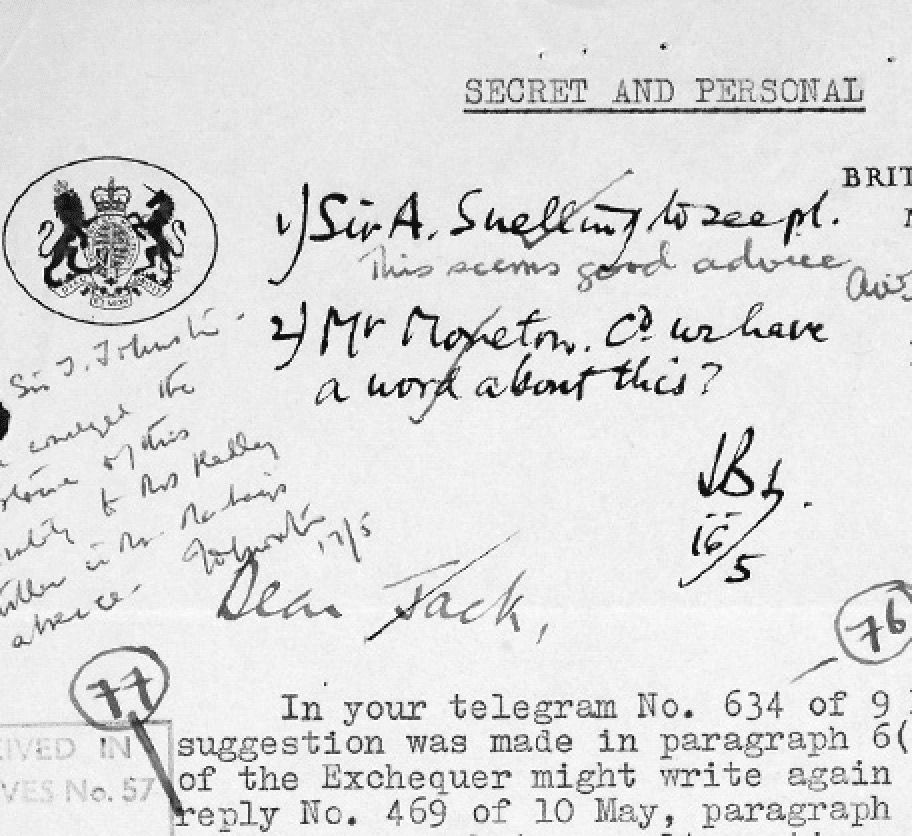 SECRET AND PERSONAL
BRIT
1) Sir A. Snelling to see pl.
This seems good advice
2) Mr Moreton. Cd we have
a word about this?
JBJ.
16/5
Sir J. Johnston.
the
of this
to Mrs Kelley
in Mr
absence. 17/5
Dear Jack,
76
77
In your telegram No. 634 of 9
suggestion was made in paragraph 6(
of the Exchequer might write again
reply No. 469 of 10 May, paragraph
EIVED IN
VES No. 57